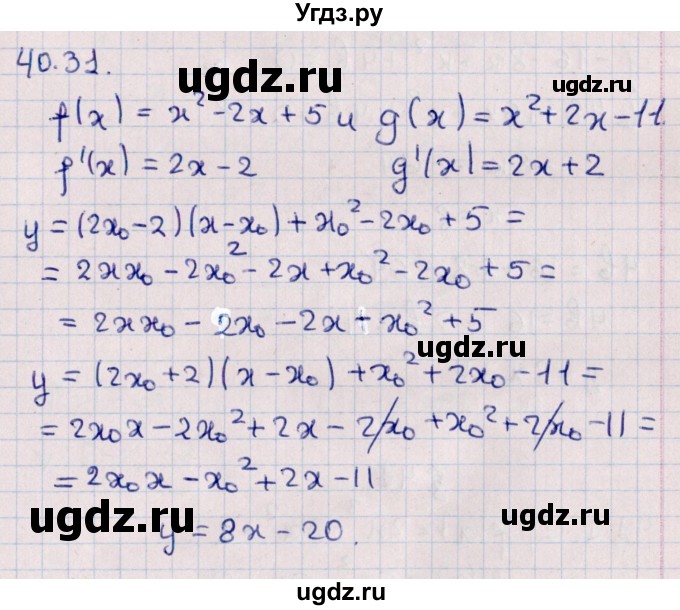 Угдз.ру
40.31.
ugdz.ru
ugdz.ru
f(x) = x² - 2x + 5 и g(x) = x² + 2x - 11.
f'(x) = 2x - 2 g'(x) = 2x + 2
y = (2x₀ - 2)(x - x₀) + x₀² - 2x₀ + 5 =
= 2xx₀ - 2x₀² - 2x + x₀² - 2x₀ + 5 =
= 2xx₀ - 2x₀ - 2x - x₀² + 5
ugdz.ru
y = (2x₀ + 2)(x - x₀) + x₀² + 2x₀ - 11 =
= 2x₀x - 2x₀² + 2x - 2x₀ + x₀² + 2x₀ - 11 =
= 2x₀x - x₀² + 2x - 11
ugdz.ru
ugdz.ru
y = 8x - 20.
ugdz.ru